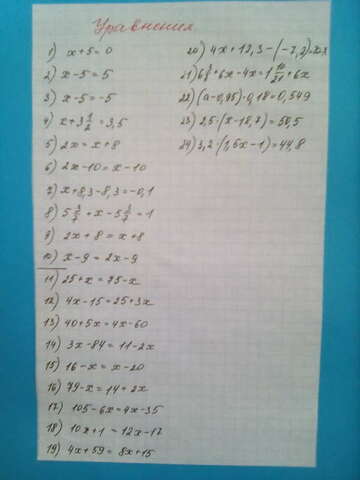 Уравнения
1) x+5=0
2) x-5=5
3) x-5=-5
4) x+3 1/2=3,5
5) 2x=x+8
6) 2x-10=x-10
7) x+8,3-8,3=-0,1
8) 5 3/7+x-5 3/7=1
9) 2x+8=x+8
10) x-9=2x-9
11) 25+x=75-x
12) 4x-15=25+3x
13) 40+5x=4x-60
14) 3x-84=11-2x
15) 16-x=x-20
16) 79-x=14+2x
17) 105-6x=4x-35
18) 10x+1=12x-17
19) 4x+59=8x+15
20) 4x+12,3-(-7,2)=
21) +6x-4x=1 +6x
22) (a-0,85)·0,18=0,549
23) 2,5·(x-18,7)=50,5
24) 3,2·(1,5x-1)=44,8